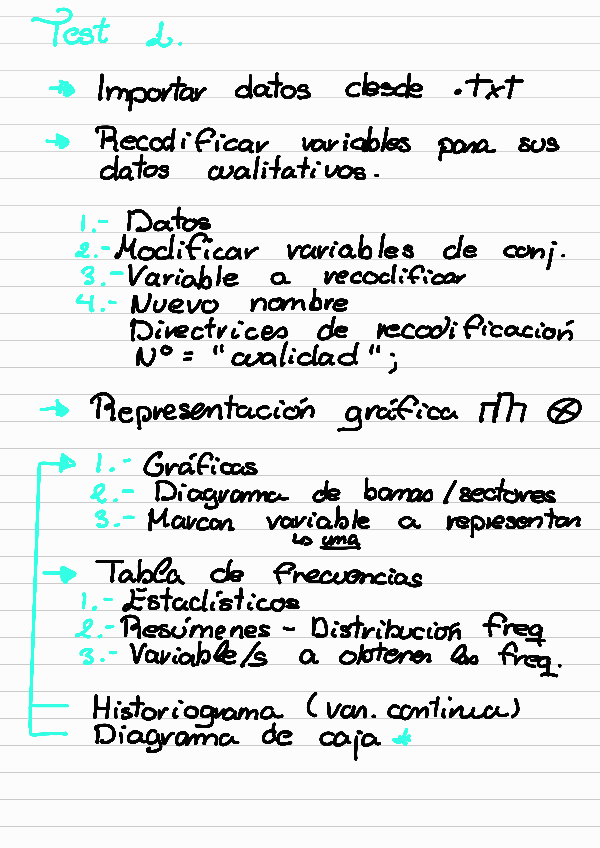 Test 1.
→ Importar datos desde .txt
→ Recodificar variables para sus
datos cualitativos.
1.- Datos
2.- Modificar variables de conj.
3.- Variable a recodificar
4.- Nuevo nombre
Directrices de recodificación
Nº = "cualidad";
→ Representación gráfica
1.- Gráficas
2.- Diagrama de barras/sectores
3.- Marcar variable a representar
↳ una
→ Tabla de frecuencias
1.- Estadísticos
2.- Resúmenes - Distribución freq
3.- Variable/s a obtener las freq.
Historiograma (var. continua)
Diagrama de caja